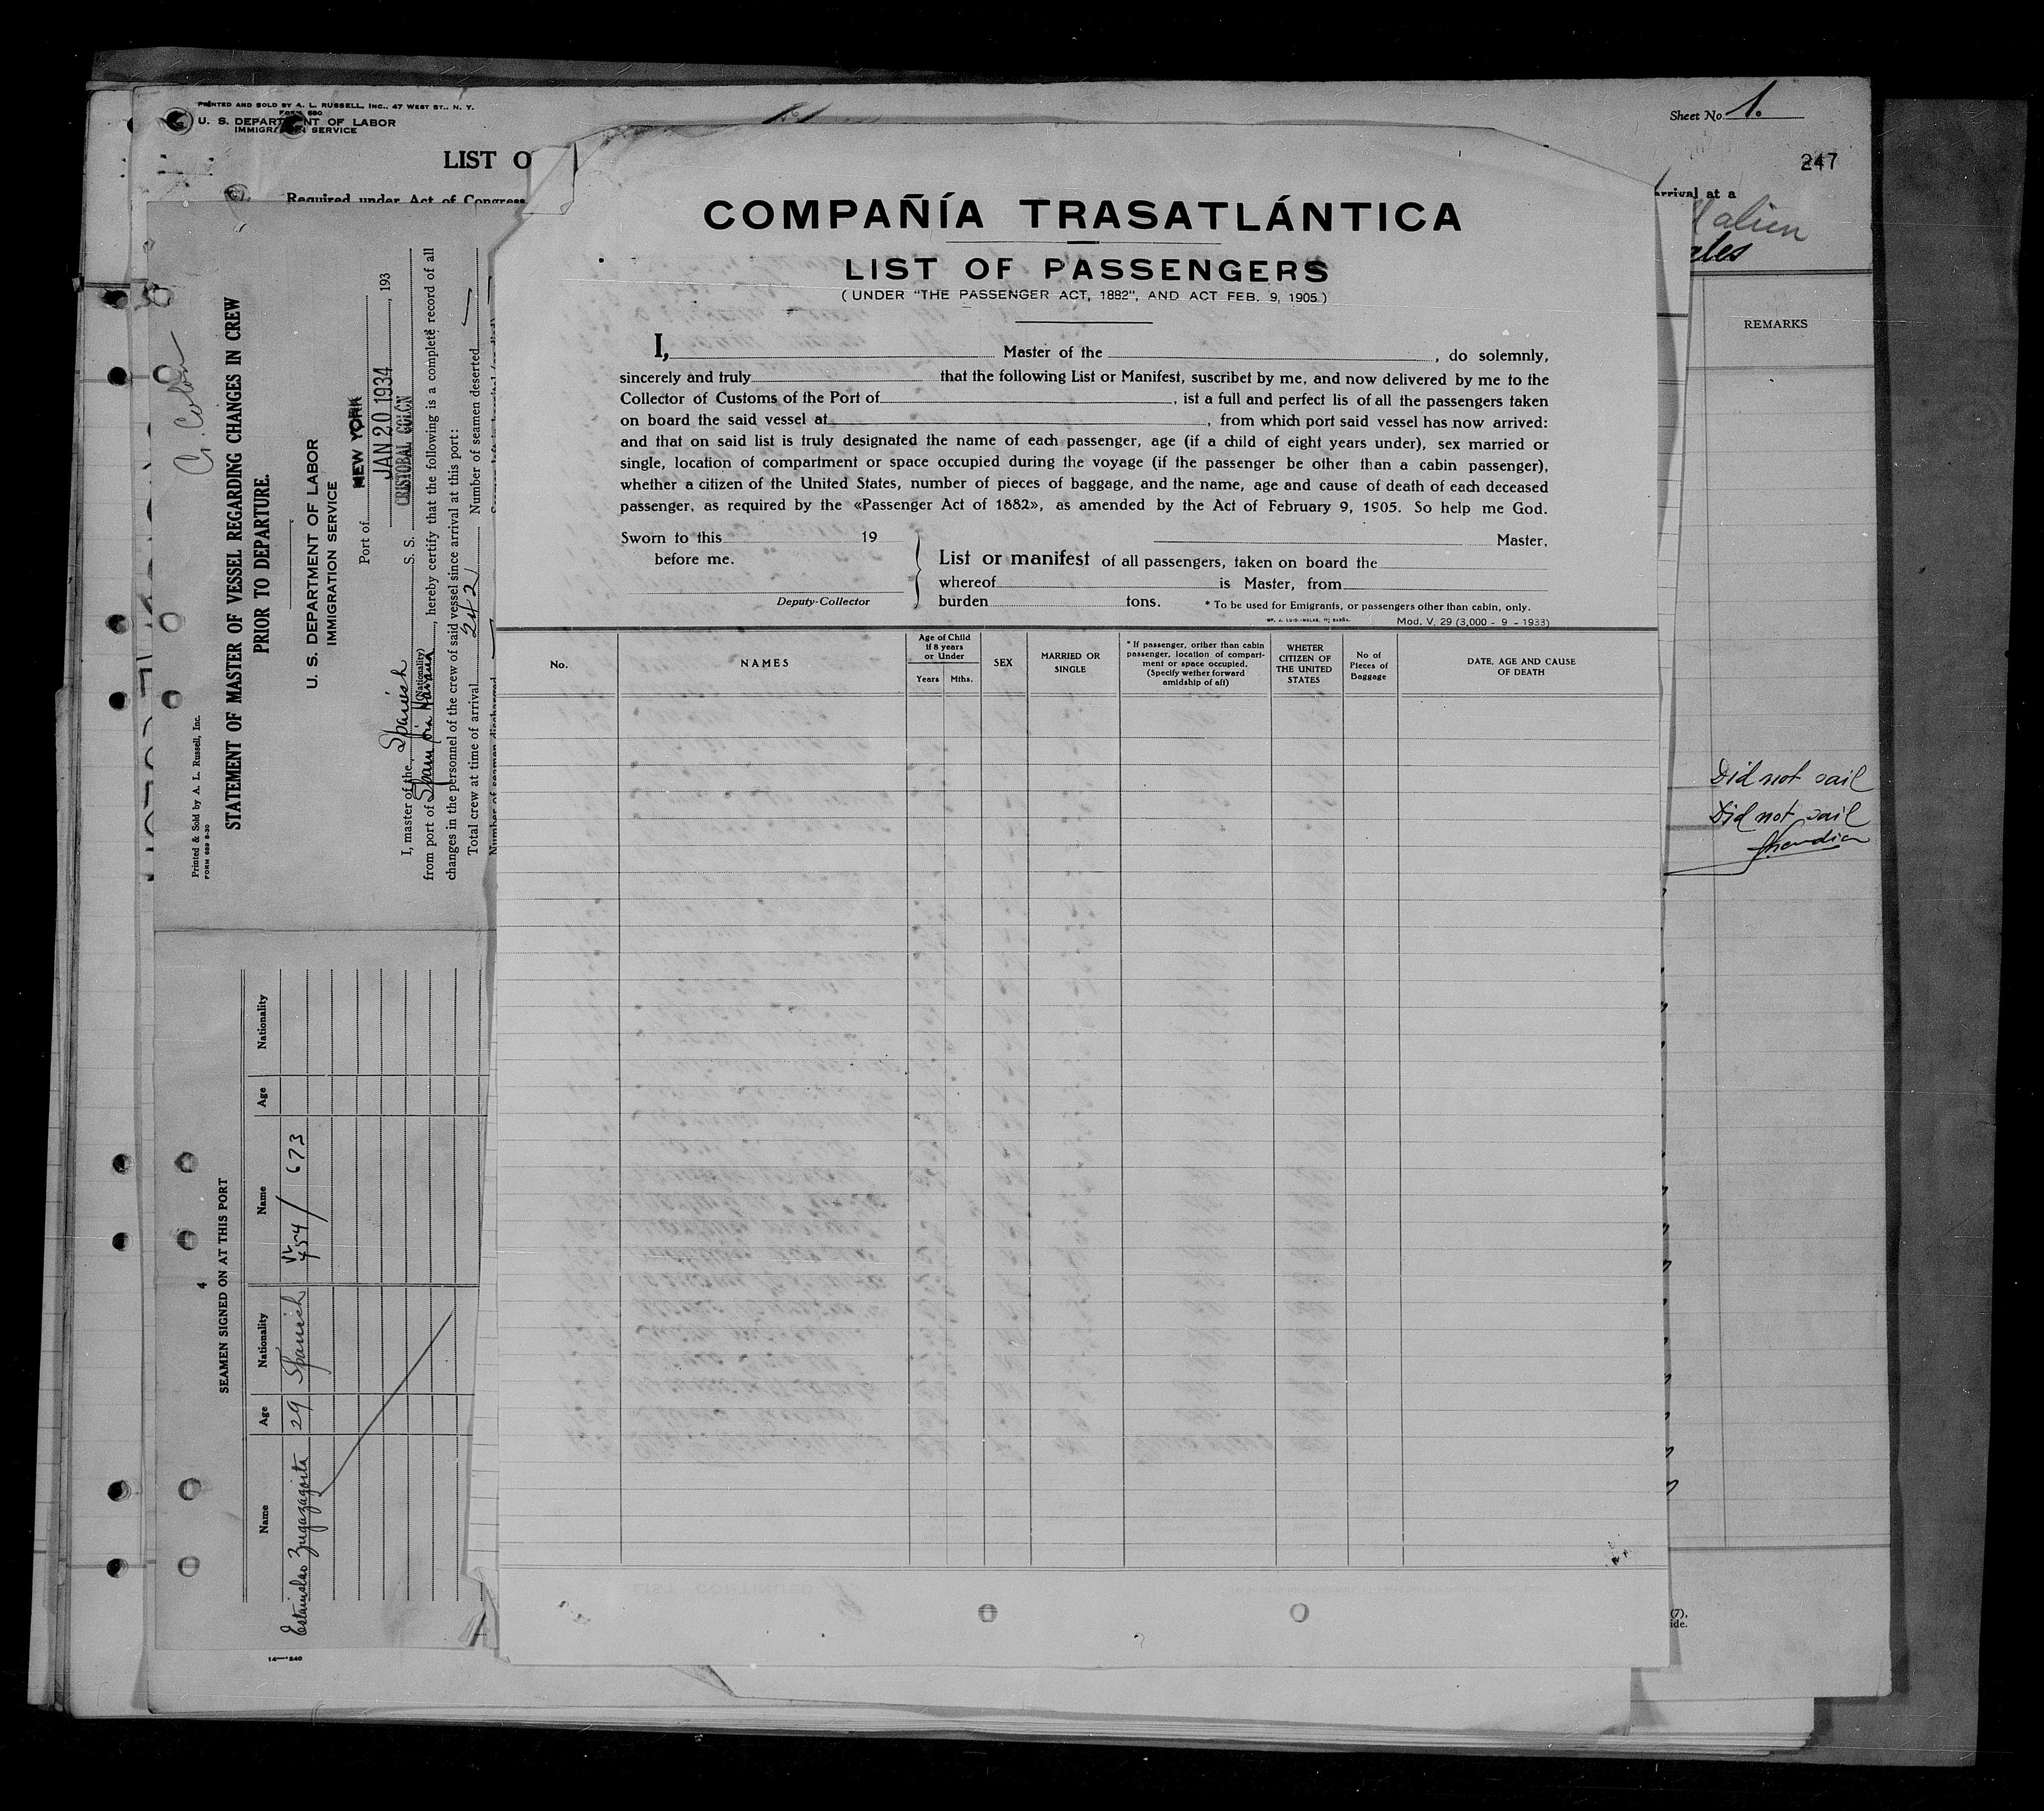 PRINTED AND SOLD BY A. L. RUSSELL, INC., 47 WEST ST., N. Y.
U. S. DEPARTMENT OF LABOR
IMMIGRATION SERVICE
LIST O
Required under Act of Congress
Sheet No. 1.
247
arrival at a
alien
ates
REMARKS
Did not sail
Did not sail
(7).
ide.
C. Colon
Printed & Sold by A. L. Russell, Inc.
FORM 689 8-30
STATEMENT OF MASTER OF VESSEL REGARDING CHANGES IN CREW
PRIOR TO DEPARTURE.
U. S. DEPARTMENT OF LABOR
IMMIGRATION SERVICE
Port of NEW YORK
JAN 20 1934, 193
I, master of the Spanish S. S. CRISTOBAL COLON
(Nationality)
from port of Spain via Havana, hereby certify that the following is a complete record of all
changes in the personnel of the crew of said vessel since arrival at this port:
Total crew at time of arrival 242 Number of seamen deserted
Number of seamen discharged
4
SEAMEN SIGNED ON AT THIS PORT
Name Age Nationality Name Age Nationality
Estanislao Zugazagoita 29 Spanish 454/ 673
COMPAÑÍA TRASATLÁNTICA
LIST OF PASSENGERS
(UNDER "THE PASSENGER ACT, 1882", AND ACT FEB. 9, 1905.)
I, Master of the , do solemnly,
sincerely and truly that the following List or Manifest, suscribet by me, and now delivered by me to the
Collector of Customs of the Port of , ist a full and perfect lis of all the passengers taken
on board the said vessel at , from which port said vessel has now arrived:
and that on said list is truly designated the name of each passenger, age (if a child of eight years under), sex married or
single, location of compartment or space occupied during the voyage (if the passenger be other than a cabin passenger),
whether a citizen of the United States, number of pieces of baggage, and the name, age and cause of death of each deceased
passenger, as required by the «Passenger Act of 1882», as amended by the Act of February 9, 1905. So help me God.
Sworn to this 19 Master,
before me.
Deputy-Collector
List or manifest of all passengers, taken on board the
whereof is Master, from
burden tons. * To be used for Emigrants, or passengers other than cabin, only.
Mod. V. 29 (3.000 - 9 - 1933)
No.
NAMES
Age of Child
if 8 years
or Under
Years Mths.
SEX
MARRIED OR
SINGLE
* If passenger, orther than cabin
passenger, location of compart-
ment or space occupied.
(Specify wether forward
amidship of aft)
WHETER
CITIZEN OF
THE UNITED
STATES
No of
Pieces of
Baggage
DATE, AGE AND CAUSE
OF DEATH